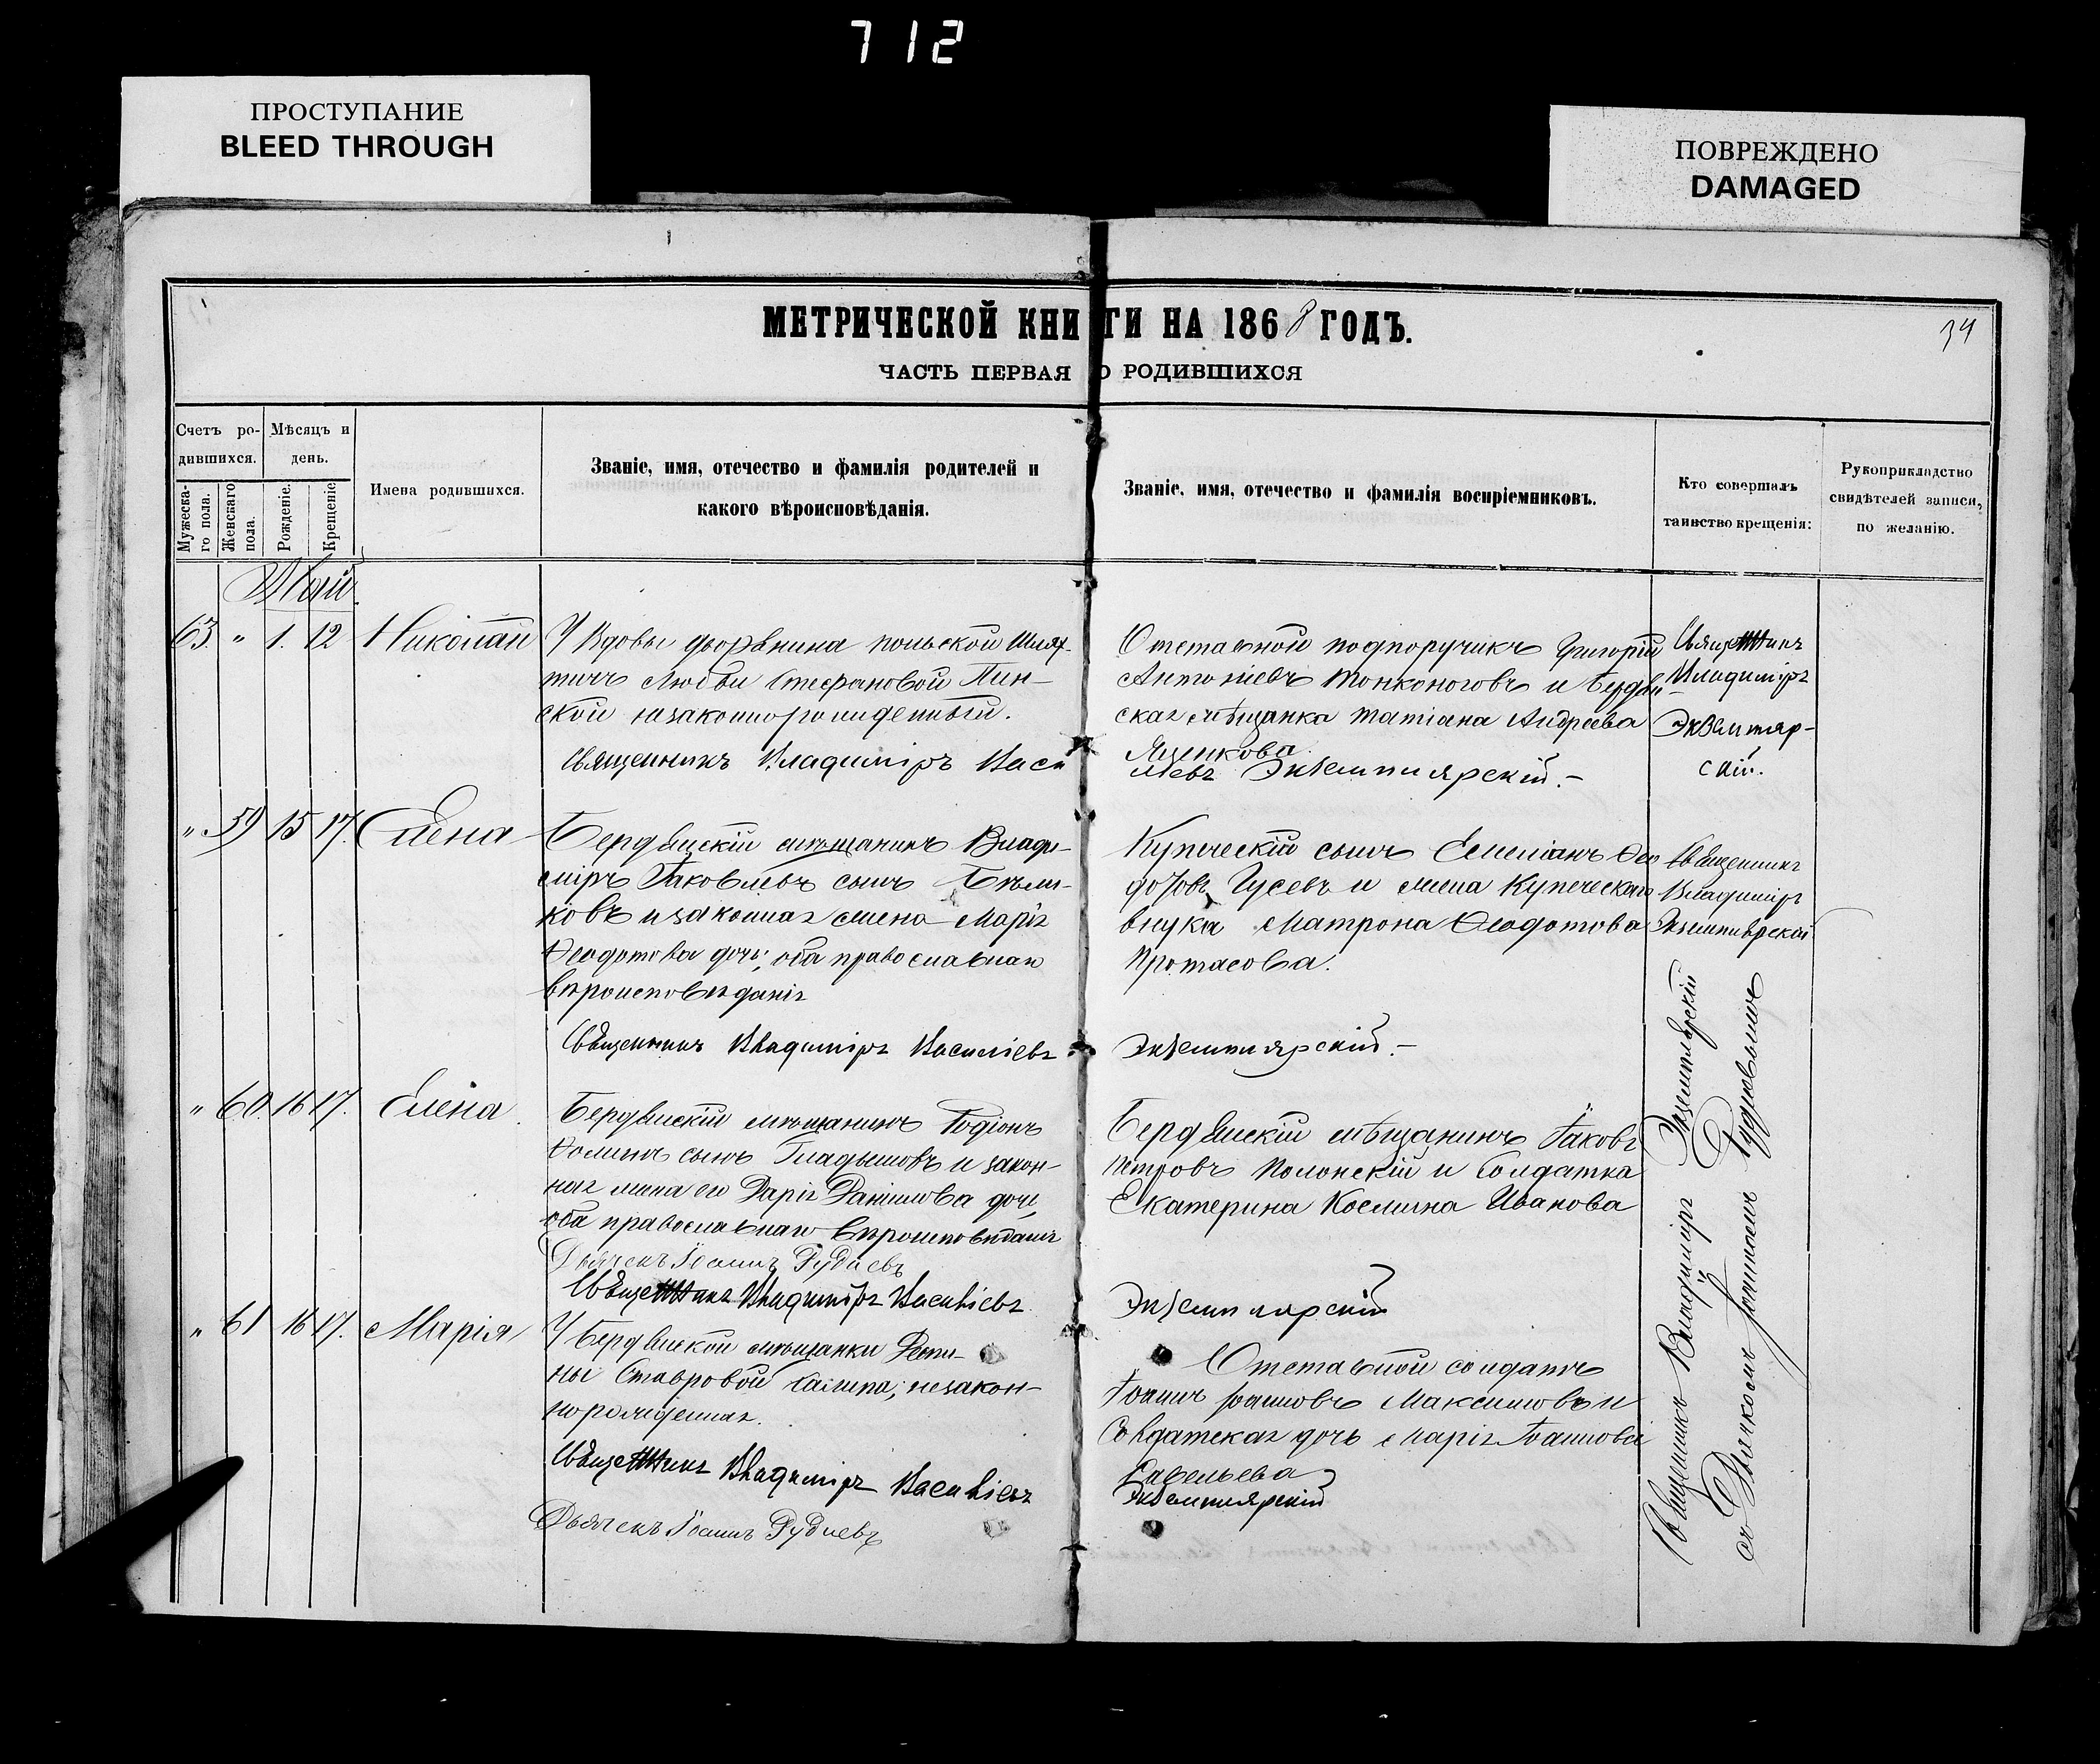 712
ПРОСТУПАНИЕ
BLEED THROUGH
ПОВРЕЖДЕНО
DAMAGED
МЕТРИЧЕСКОЙ КНИГИ НА 1868 ГОДЪ.
34
ЧАСТЬ ПЕРВАЯ О РОДИВШИХСЯ
Счетъ ро-
дившихся.
Мужеска-
го пола.
Женскаго
пола.
Мѣсяцъ и
день.
Рожденіе.
Крещеніе
Имена родившихся.
Званіе, имя, отечество и фамилія родителей и
какого вѣроисповѣданія.
Званіе, имя, отечество и фамилія воспріемниковъ.
Кто совершалъ
таинство крещенія:
Рукоприкладство
свидѣтелей записи,
по желанію.
Май
63. " 1. 12 Николай
У Вдовы дворянина польской Шлях-
тичъ Любви Стефановой Пин-
ской незаконнорожденный.
Священникъ Владиміръ Васи
Отставной подпоручикъ Григорій
Антоніевъ Тонконоговъ и Бердян-
ская мѣщанка Татіана Андреева
Яценкова
льевъ Экземплярскій.-
Священникъ
Владиміръ
Экземпляр-
скій.
" 59 15 17. Елена
Бердянскій мѣщанинъ Влади-
міръ Іаковлевъ сынъ Бѣли-
ковъ и законная жена Марія
Ѳеодотова дочь; оба православнаго
вѣроисповѣданія
Священникъ Владиміръ Василіевъ
Купеческій сынъ Емеліанъ Ѳео
дотовъ Гусевъ и жена Купеческаго
внука Матрона Ѳеодотова
Протасова.
Экземплярскій.-
Священникъ
Владиміръ
Экземплярскій
" 60. 16 17. Елена
Бердянскій мѣщанинъ Родіонъ
Ѳоминъ сынъ Гладышовъ и закон-
ная жена его Дарія Даніилова дочь,
оба православнаго вѣроисповѣданія
Дьячекъ Іоаннъ Рудневъ
Священникъ Владиміръ Василіевъ
Бердянскій мѣщанинъ Іаковъ
Петровъ Полонскій и Солдатка
Екатерина Косьмина Иванова
Экземплярскій
" 61 16 17. Марія
У Бердянской мѣщанки
Ставровой незакон-
норожденная.
Священникъ Владиміръ Василіевъ
Дьячекъ Іоаннъ Рудневъ
Отставной солдатъ
Іоаннъ Іоанновъ Максимовъ и
Солдатская дочь Марія Іоаннова
Савельева
Экземплярскій
Священникъ Владиміръ Экземплярскій
съ Дьячкомъ Іоанномъ